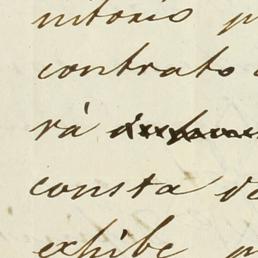 nitoris p
contrato
rá
consta do
exhibe p